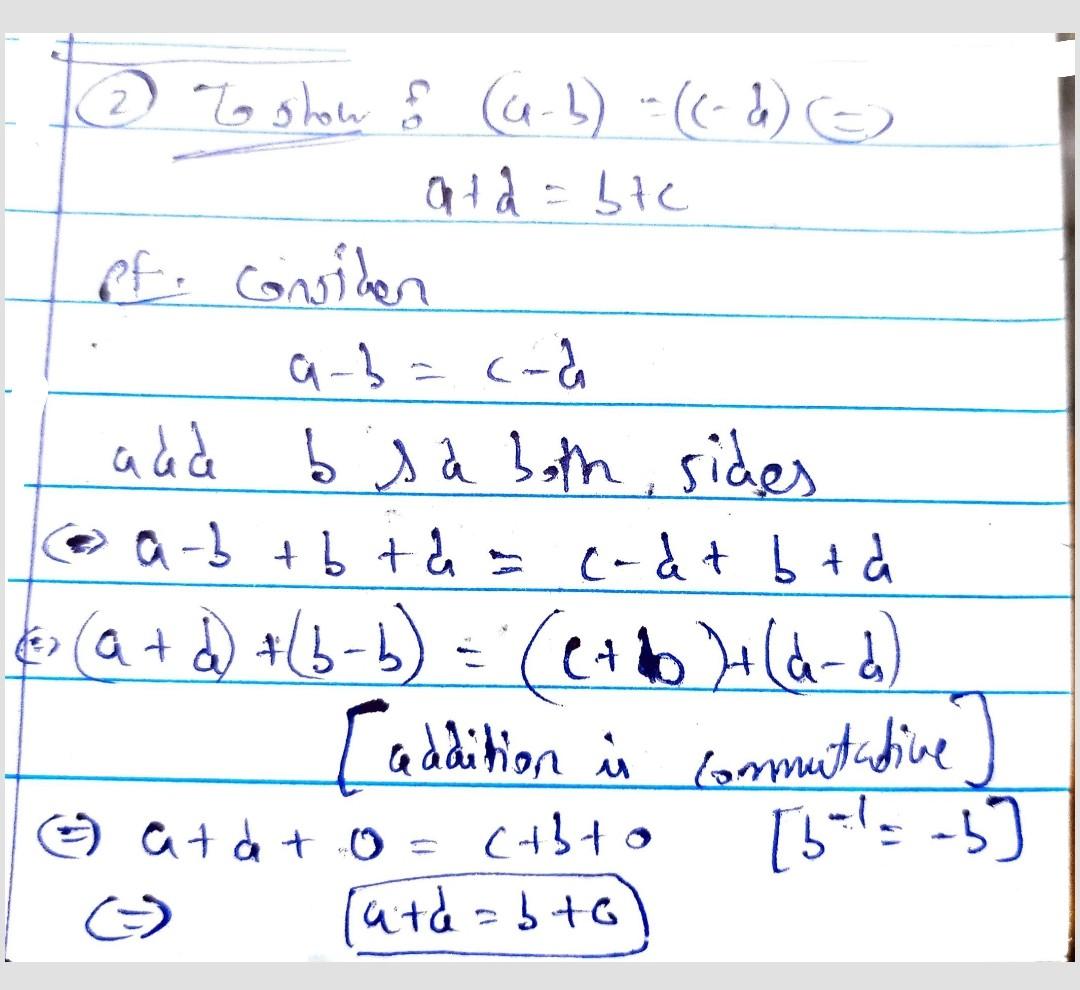 ② To show : (a-b) = (c-d) <=>
a+d = b+c
pf. Consider
a-b = c-d
add b & d both sides
<=> a-b +b +d = c-d+ b +d
<=> (a+d) +(b-b) = (c+b)+(d-d)
[addition is commutative]
<=> a+d+0 = c+b+0 [b⁻¹= -b]
<=> a+d = b+c